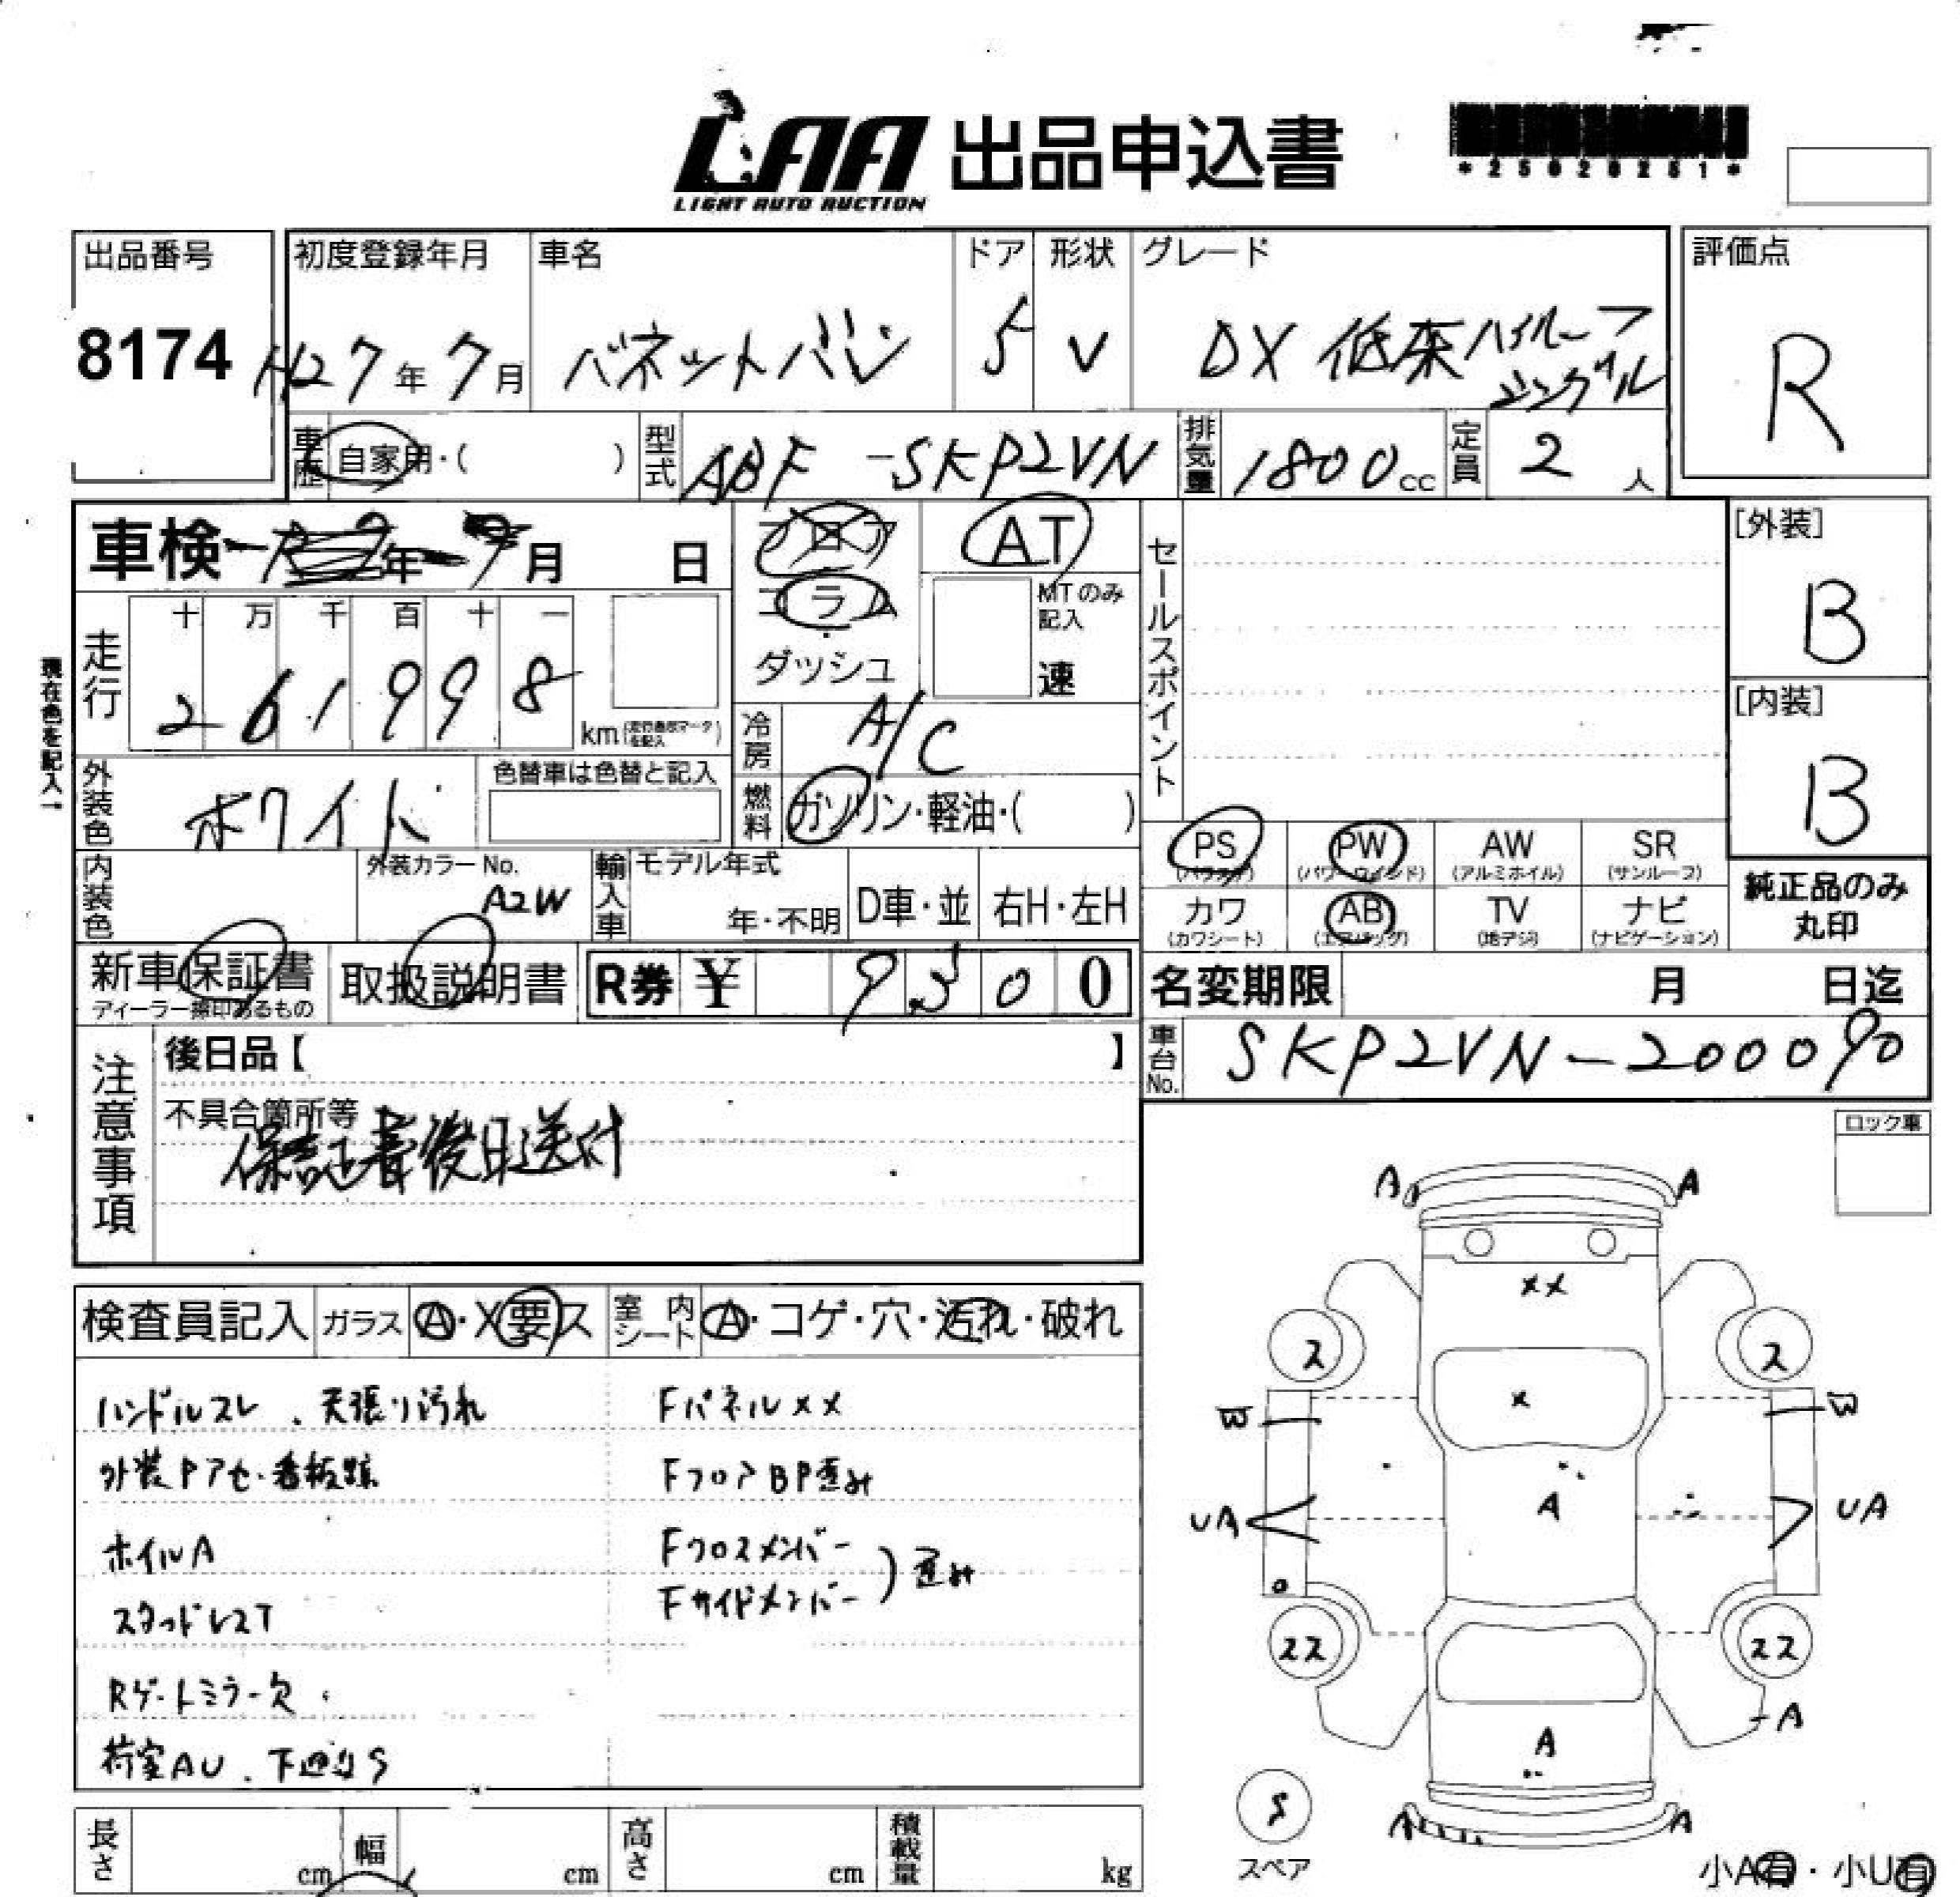 LAA 出品申込書
LIGHT AUTO AUCTION
*25020251*
出品番号
8174
初度登録年月
H27年 7月
車名
バネットバン
ドア
5
形状
V
グレード
DX 低床ハイルーフ
シングル
評価点
R
車歴
自家用・( )
型式
ABF-SKP2VN
排気量
1800cc
定員
2人
車検 年 月 日
フロア
コラム
ダッシュ
AT
MTのみ
記入
速
セールスポイント
[外装]
B
[内装]
B
現在色を記入→
走行
十 万 千 百 十 一
2 6 1 9 9 8
km
冷房
A/C
燃料
ガソリン・軽油・( )
外装色
ホワイト
色替車は色替と記入
内装色
外装カラーNo.
A2W
輸入車
モデル年式
年・不明
D車・並
右H・左H
PS
(パワステ)
PW
(パワーウインド)
AW
(アルミホイル)
SR
(サンルーフ)
カワ
(カワシート)
AB
(エアバッグ)
TV
(地デジ)
ナビ
(ナビゲーション)
純正品のみ
丸印
新車保証書
ディーラー捺印あるもの
取扱説明書
R券 ¥ 9500
名変期限 月 日迄
車台No.
SKP2VN-200090
注意事項
後日品【 】
不具合箇所等
保証書後日送付
ロック車
検査員記入
ガラス
A・X要ス
室内シート
A・コゲ・穴・汚れ・破れ
ハンドルスレ、天張り汚れ
外装Pアセ・看板跡
ホイルA
スタッドレスT
Rゲートミラー欠
荷室AU、下廻りS
FパネルXX
FフロアBP歪み
Fクロスメンバー
Fサイドメンバー
) 歪み
A A
XX
2 2
X
W W
UA A UA
22 22
A
A
S
スペア
A A
小A有・小U有
長さ cm
幅 cm
高さ cm
積載量 kg